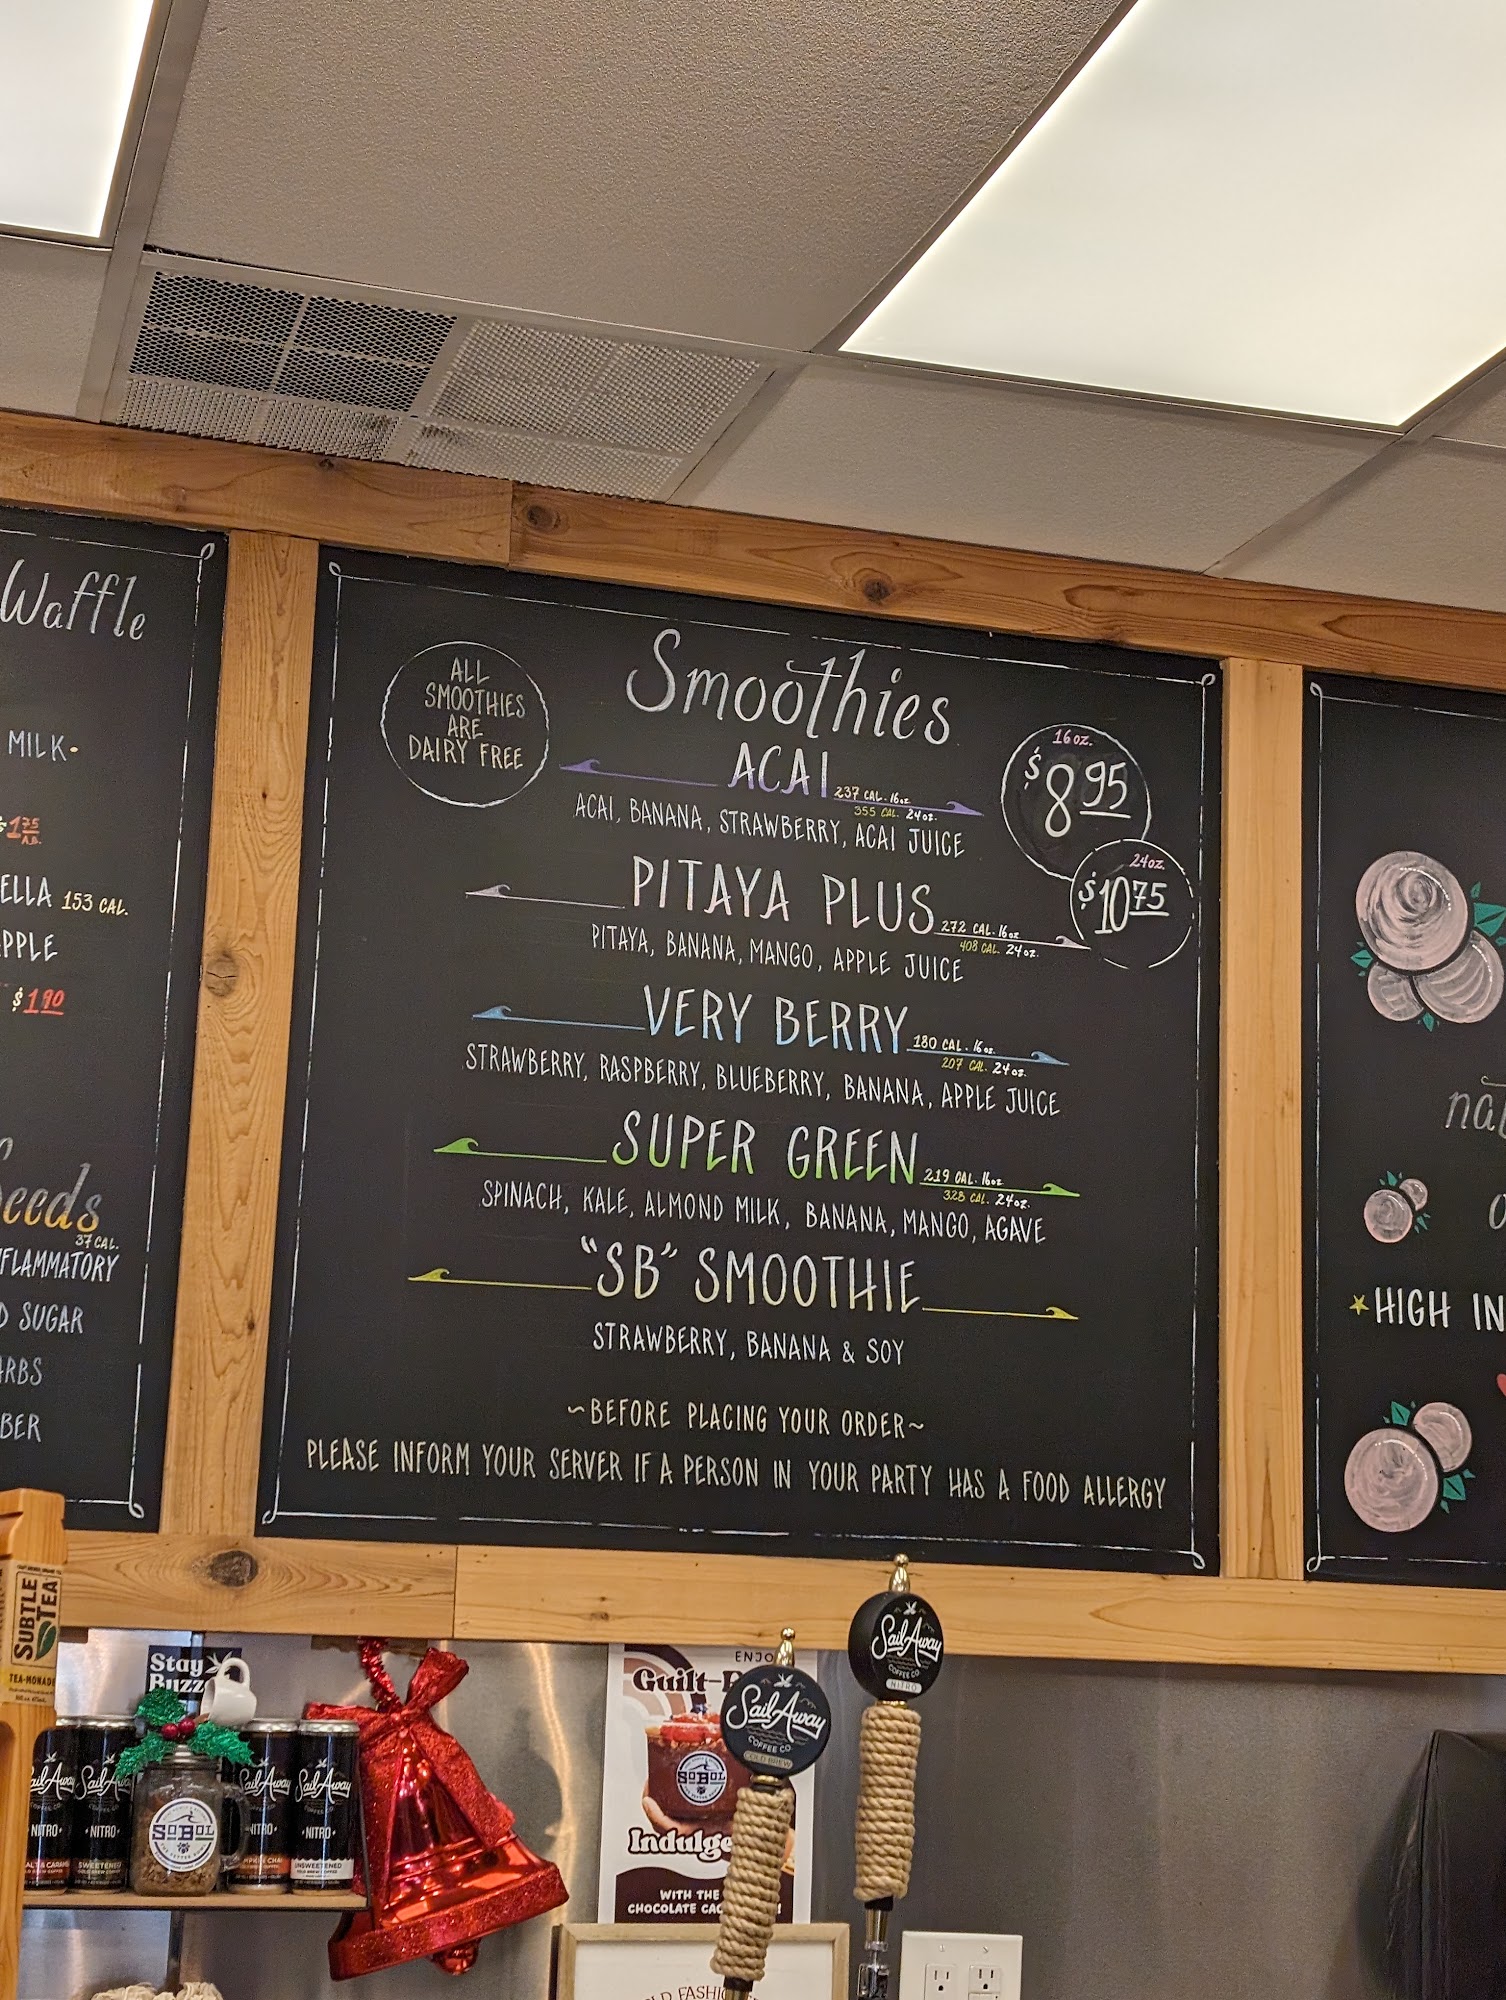 Waffle
MILK·
$1.75
A.D.
ELLA 153 CAL.
PPLE
$1.90
Seeds
37 CAL.
FLAMMATORY
D SUGAR
ARBS
BER
ALL
SMOOTHIES
ARE
DAIRY FREE
Smoothies
16 oz.
$8.95
24 oz.
$10.75
ACAI
237 CAL. 16 oz.
355 CAL. 24 oz.
ACAI, BANANA, STRAWBERRY, ACAI JUICE
PITAYA PLUS
272 CAL. 16 oz.
408 CAL. 24 oz.
PITAYA, BANANA, MANGO, APPLE JUICE
VERY BERRY
180 CAL. 16 oz.
207 CAL. 24 oz.
STRAWBERRY, RASPBERRY, BLUEBERRY, BANANA, APPLE JUICE
SUPER GREEN
219 CAL. 16oz
328 CAL. 24 oz.
SPINACH, KALE, ALMOND MILK, BANANA, MANGO, AGAVE
"SB" SMOOTHIE
STRAWBERRY, BANANA & SOY
~BEFORE PLACING YOUR ORDER~
PLEASE INFORM YOUR SERVER IF A PERSON IN YOUR PARTY HAS A FOOD ALLERGY
HIGH IN
SUBTLE
TEA
TEA-MONADE
Stay
Buzz
Sail Away
COFFEE CO.
·NITRO·
SWEETENED
Sail Away
·NITRO·
UNSWEETENED
SOBOL
ENJO
Guilt-F
SOBOL
Indulge
WITH THE
CHOCOLATE CAC
Sail Away
COFFEE CO.
COLD BREW
Sail Away
COFFEE CO.
NITRO
LD FASHIO